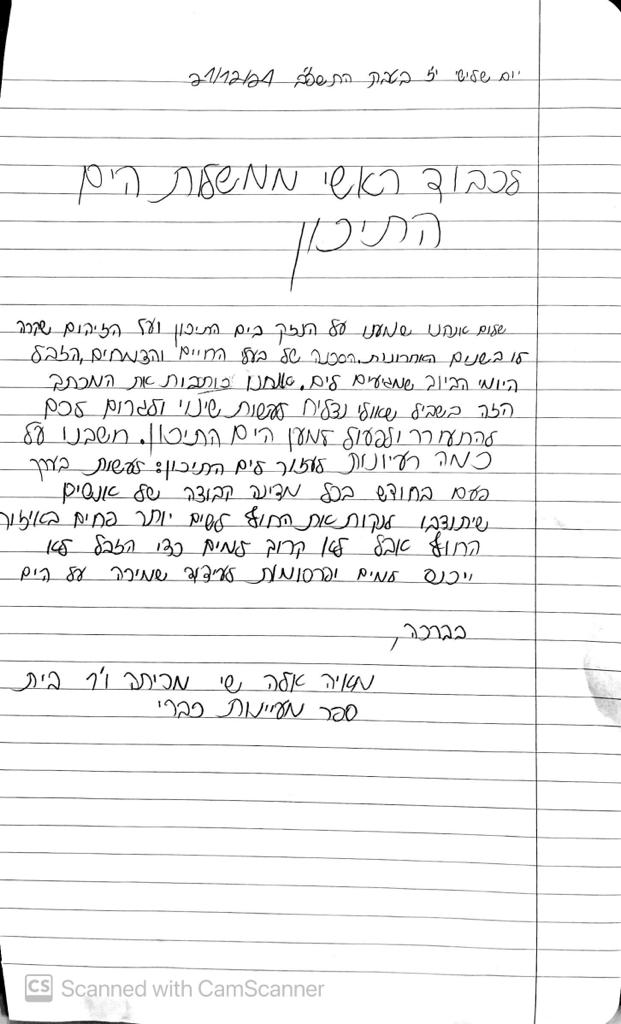 יום שלישי י"ז בטבת התשפ"ב 21/12/21
לכבוד ראשי ממשלות הים
התיכון
שלום אנחנו שמענו על הנזק בים התיכון ועל הזיהום שקרה
לו בשנים האחרונות. הסכנה של בעלי החיים והצמחים, הזבל
היומי הביוב שמגיעים לים. אנחנו כותבות את המכתב
הזה בשביל שאולי נצליח לעשות שינוי ולגרום לכם
להתעורר ולפעול למען הים התיכון. חשבנו על
כמה רעיונות לעזור לים התיכון: לעשות בערך
פעם בחודש בכל מדינה קבוצה של אנשים
שיתנדבו לנקות את החוף לשים יותר פחים באיזור
החוף אבל לא קרוב למים כדי הזבל לא
ייכנס למים ופרסומות לעידוד שמירה על הים
בברכה,
מאיה אלה שי מכיתה ו'ר בית
ספר מעיינות כברי
CS Scanned with CamScanner